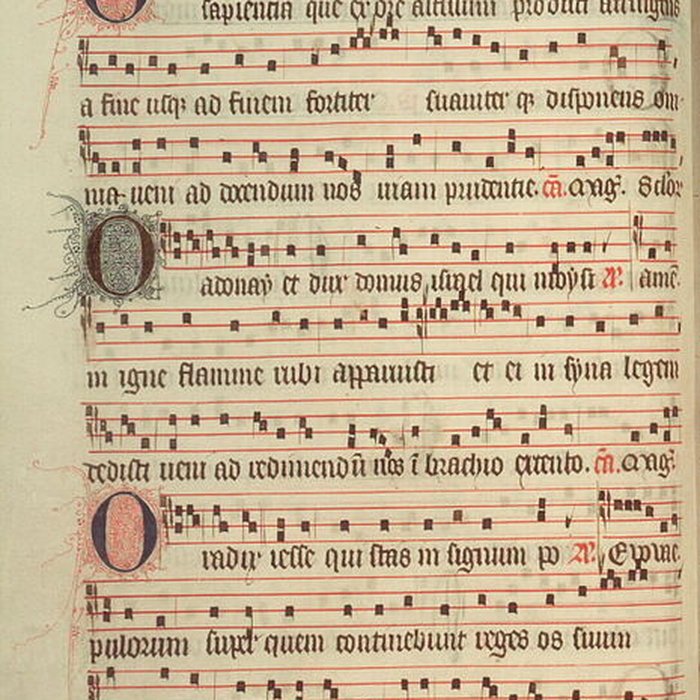 O sapientia que ex ore altissimi prodisti attingens
a fine usq; ad finem fortiter suauiter q; disponens om
nia ueni ad docendum nos uiam prudentie. ca. Mag.
O adonay et dux domus israhel qui moysi R. ame
in igne flamme rubi apparuisti et ei in syna legem
dedisti ueni ad redimendū nos ī brachio extento. ca. Mag.
O radix iesse qui stas in signum po R. Euouae
pulorum super quem continebunt reges os suum